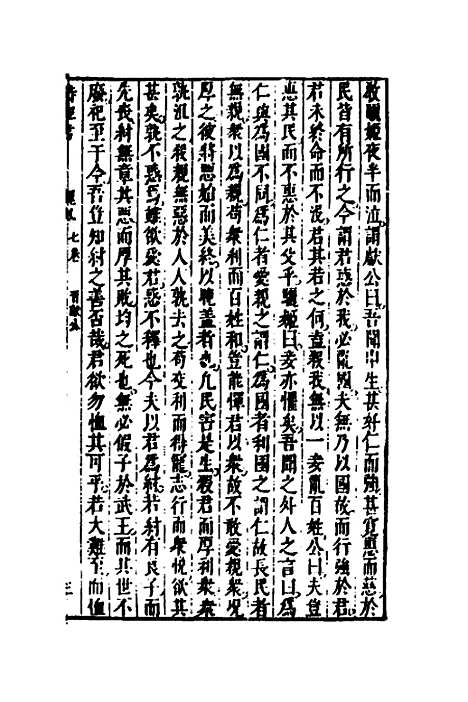 敎驪姬夜半而泣謂獻公曰吾聞申生甚好仁而強甚寬惠而慈於
民皆有所行之今謂君惑於我必亂國夫無乃以國故而行強於君
君未終命而不沒君其若之何盍殺我無以一妾亂百姓公曰夫豈
惠其民而不惠於其父乎驪姬曰妾亦懼矣吾聞之外人之言曰爲
仁與爲國不同爲仁者愛親之謂仁爲國者利國之謂仁故長民者
無親衆以爲親苟衆利而百姓和豈能憚君以衆故不敢愛親衆況
厚之彼將惡始而美終以晚蓋者也凡民害是生殺君而厚利衆衆
孰沮之殺親無惡於人人孰去之苟交利而得寵志行而衆悅欲其
甚矣孰不惑焉雖欲愛君惑不釋也今夫以君爲紂若紂有良子而
先喪紂無章其惡而厚其敗均之死也無必假手於武王而其世不
廢祀至于今吾豈知紂之善否哉君欲勿恤其可乎若大難至而恤
七卷
三